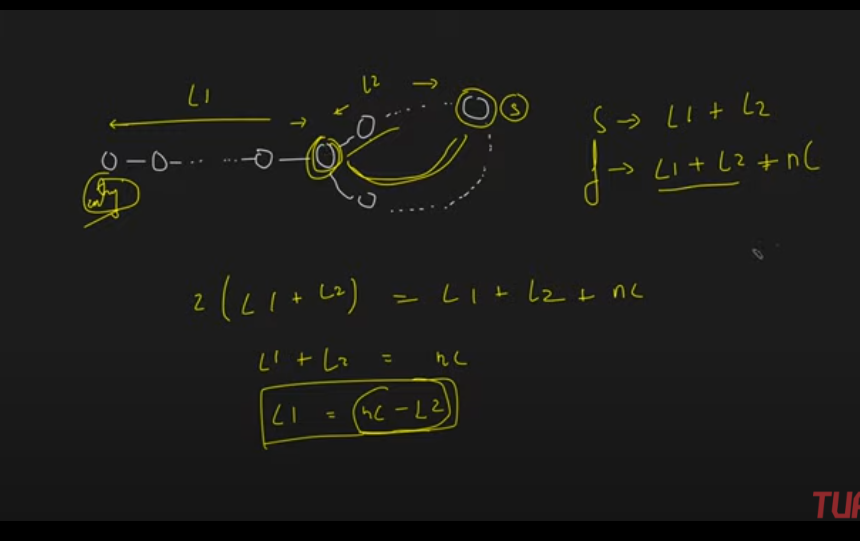 L1
L2
S
entry
S → L1 + L2
f → L1 + L2 + nC
2 (L1 + L2) = L1 + L2 + nC
L1 + L2 = nC
L1 = nC - L2
TUF